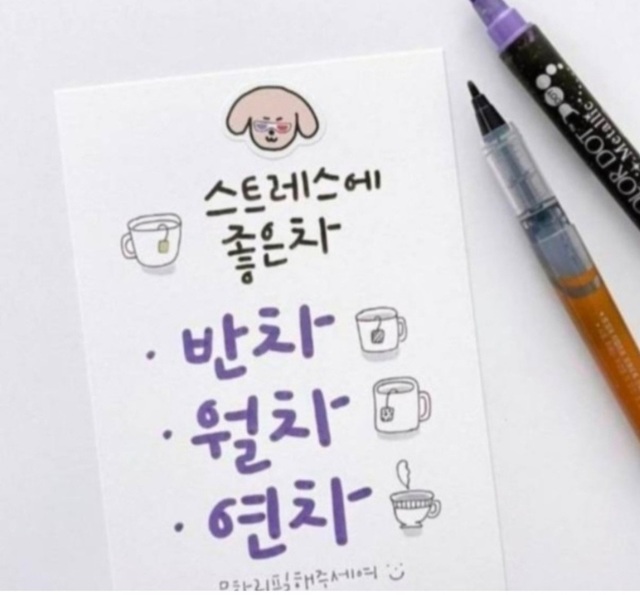 스트레스에
좋은차
· 반차
· 월차
· 연차
무한리필해주세여
COLOR DOT
+Metallic